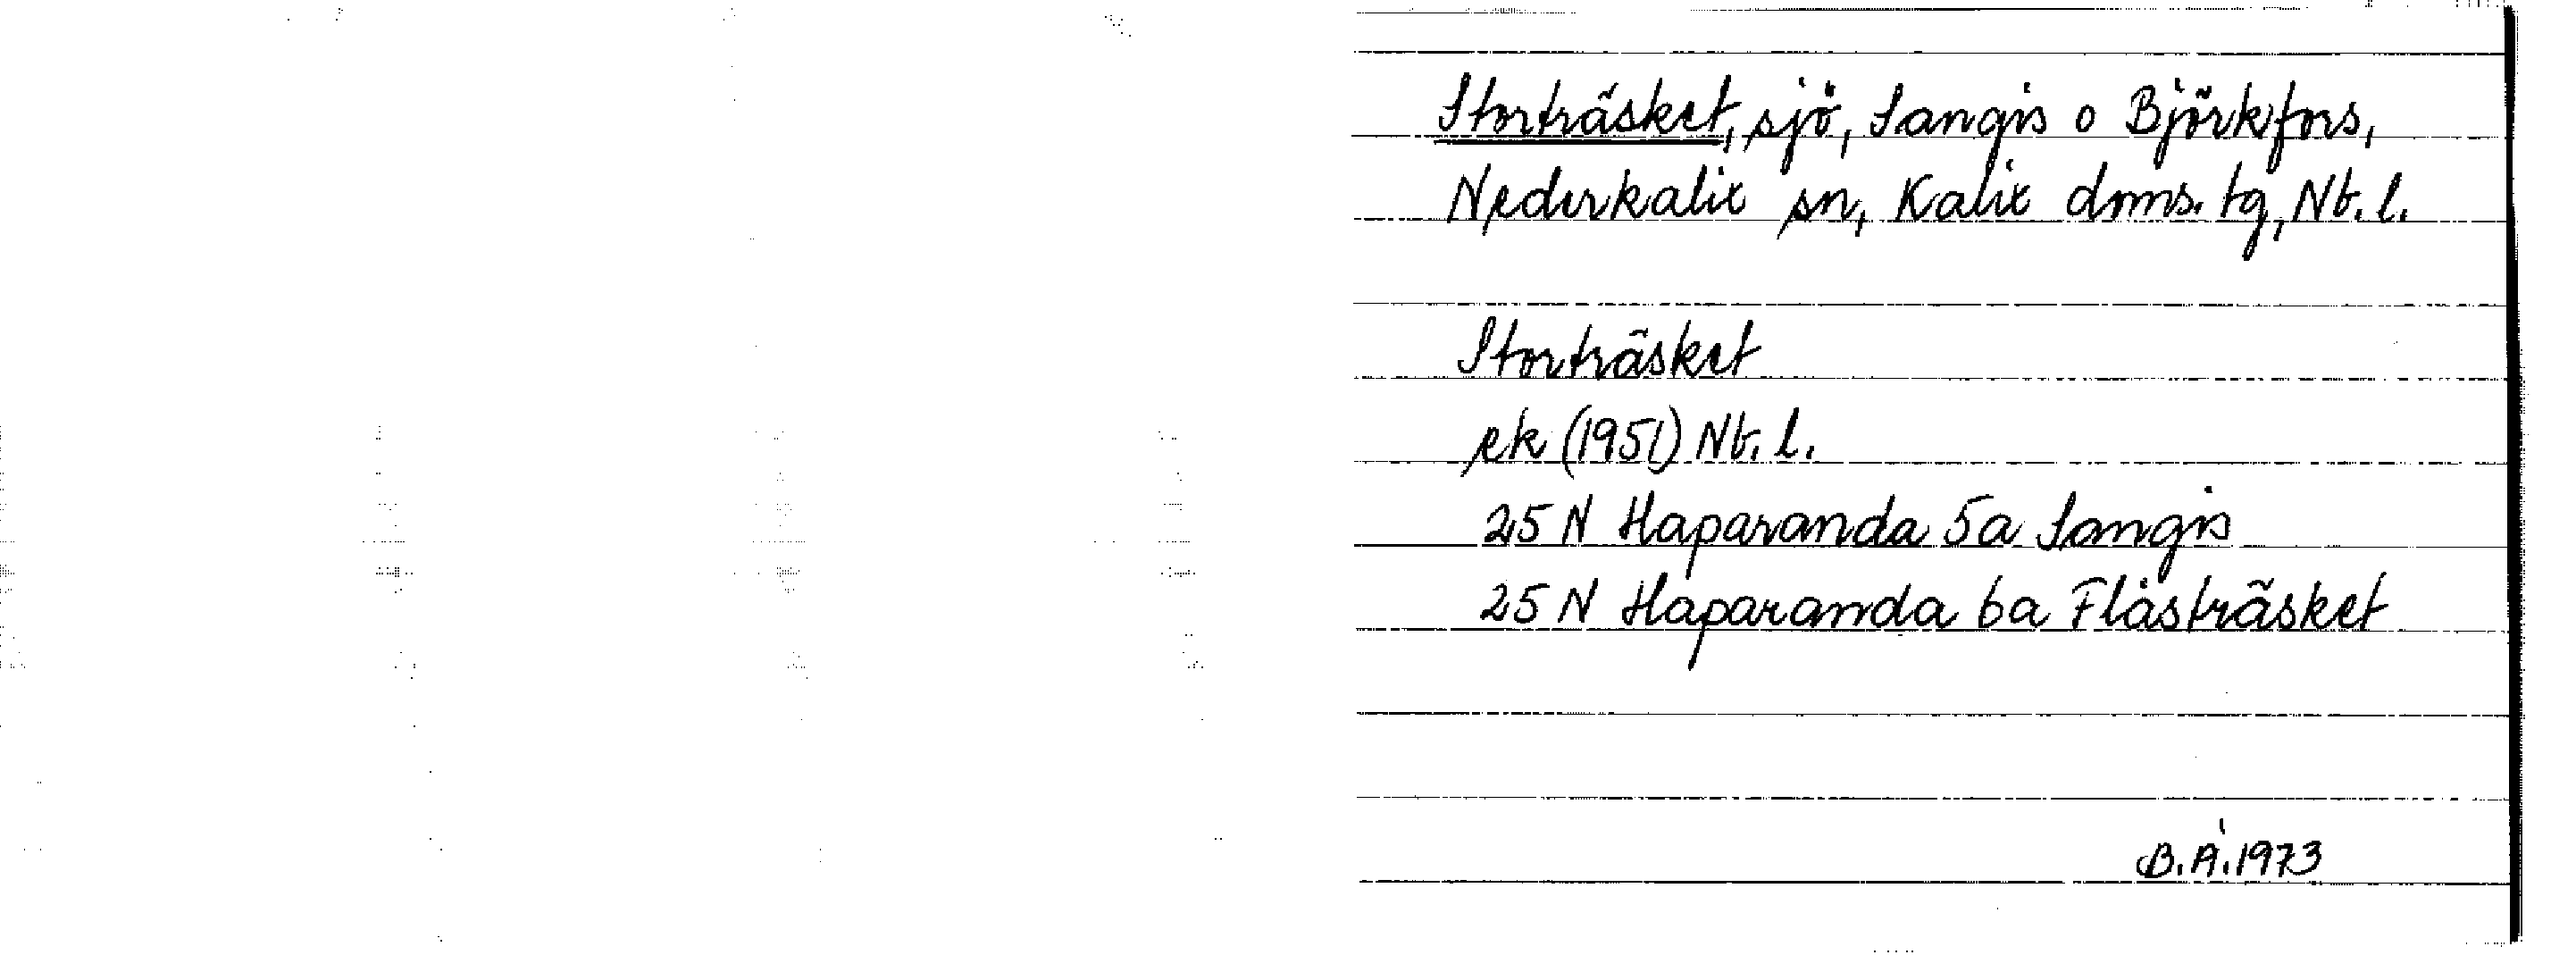 Storträsket, sjö, Sangis o Björkfors,
Nederkalix sn, Kalix doms. tg, Nb. l.
Storträsket
ek (1951) Nb. l.
25 N Haparanda 5a Sangis
25 N Haparanda 6a Flåsträsket
B.Å. 1973